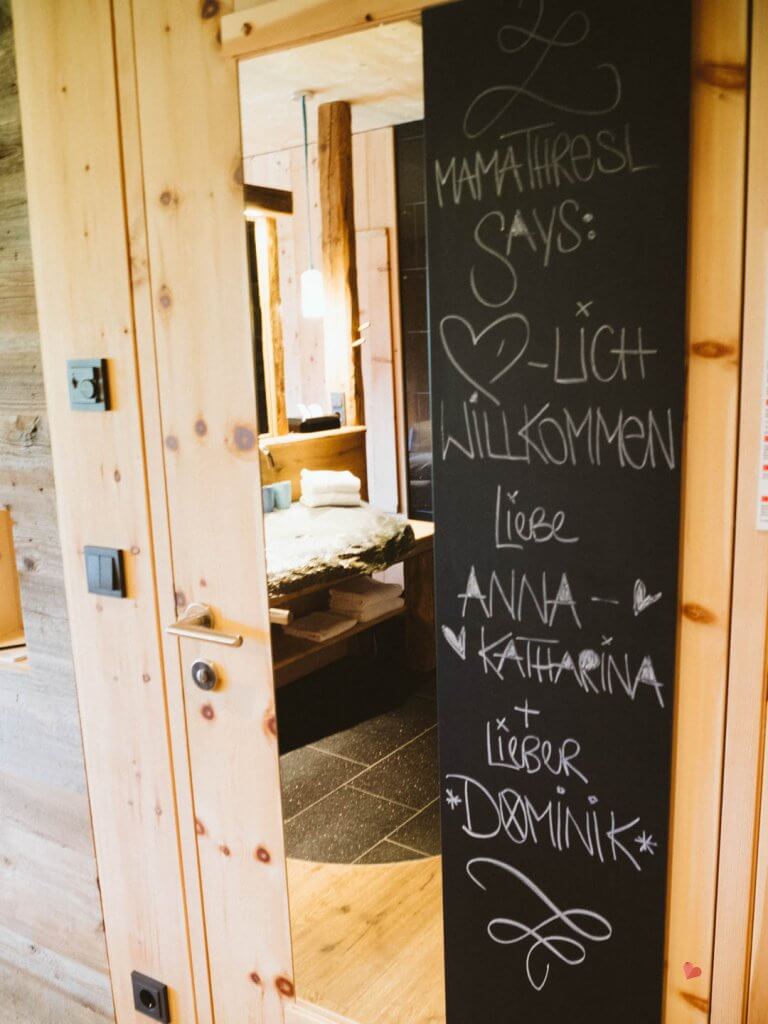 MAMATHRESL
SAYS:
♡-LICH
WILLKOMMEN
LIEBE
ANNA-
KATHARINA
+
LIEBER
*DOMINIK*